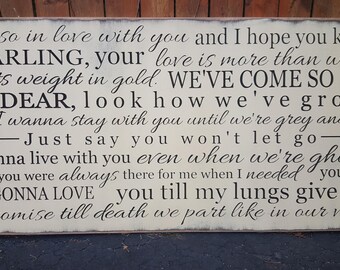 so in love with you and I hope you k
ARLING, your love is more than w
ts weight in gold. WE'VE COME SO
DEAR, look how we've gro
I wanna stay with you until we're grey an
Just say you won't let go
nna live with you even when we're gh
you were always there for me when I needed yo
GONNA LOVE you till my lungs give
omise till death we part like in our v